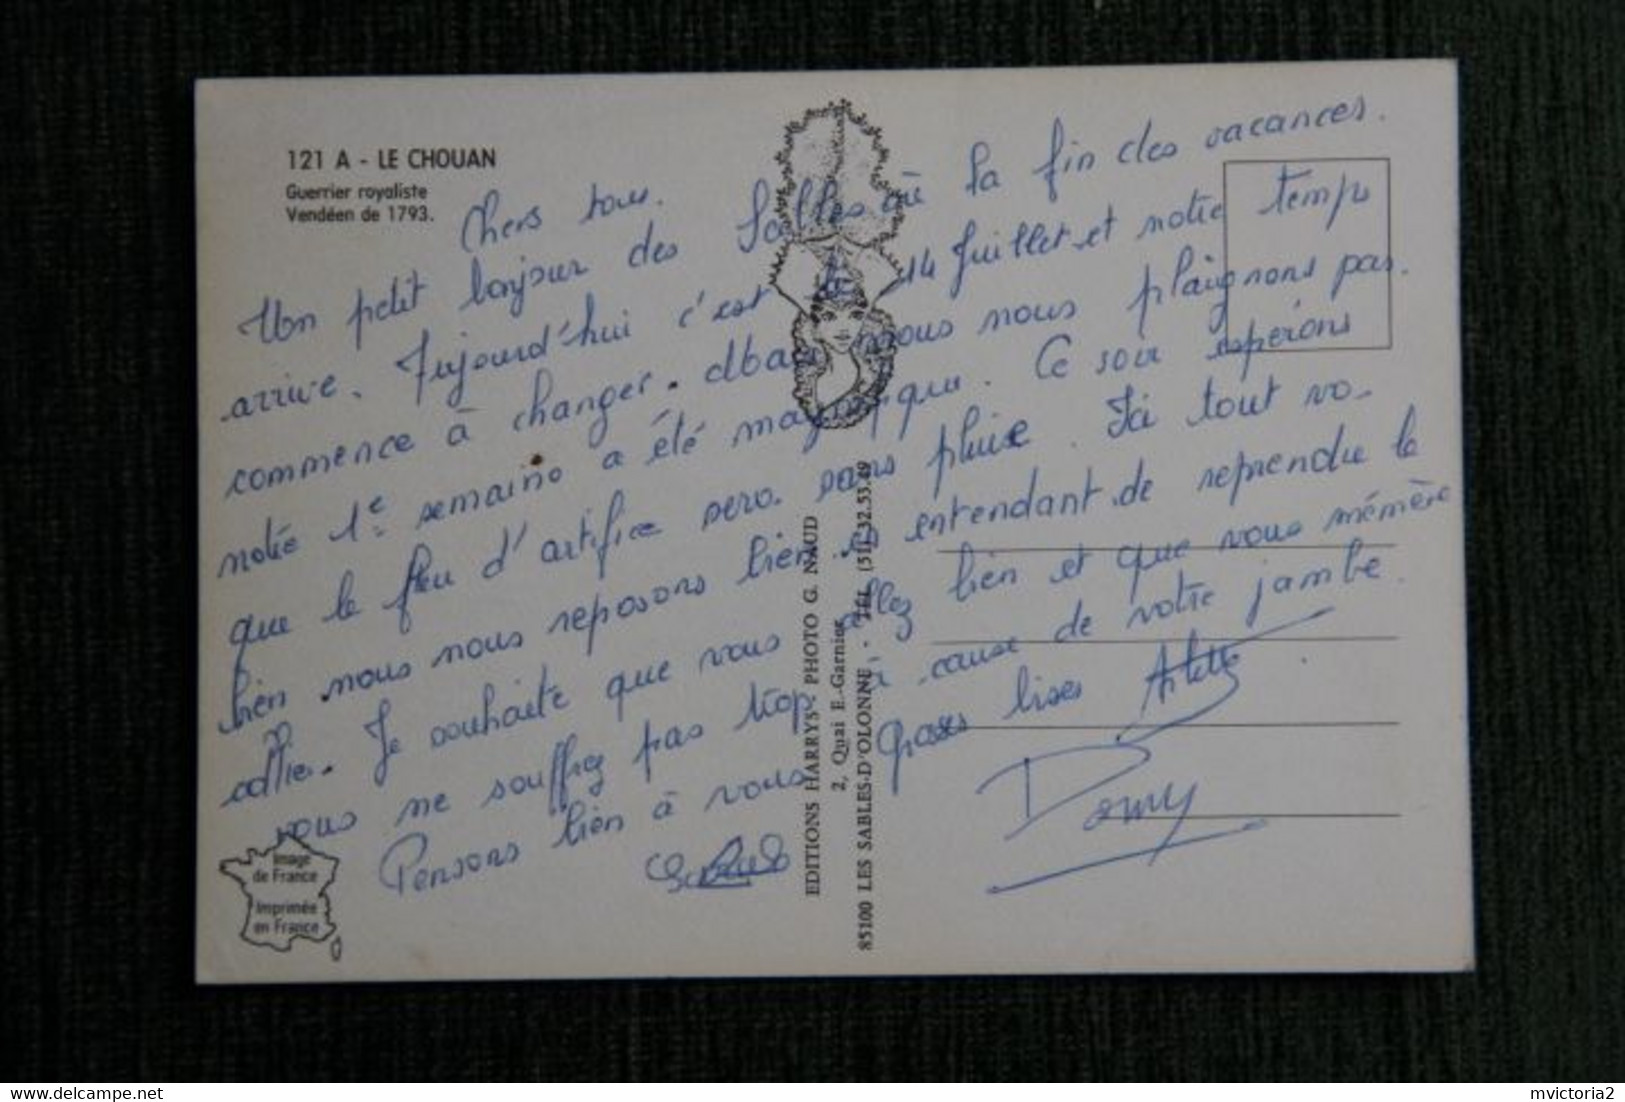 121 A - LE CHOUAN
Guerrier royaliste
Vendéen de 1793.
Chers tous.
Un petit bonjour des Salles où la fin des vacances.
arrive. Aujourd'hui c'est le 14 Juillet et notre temps
commence à changer. Mais nous nous plaignons pas.
notre 1e semaine a été magnifique. Ce soir espérons
que le feu d'artifice sera sans pluie. Ici tout va
bien nous nous reposons bien en entendant de reprendre le
collier. Je souhaite que vous allez bien et que vous mémère
vous ne souffrez pas trop à cause de votre jambe.
Pensons bien à vous grosses bises
EDITIONS HARRYS - PHOTO G. NAUD
2, Quai E.-Garnier
85100 LES SABLES-D'OLONNE - TÉL. (51) 32.53.49
Image
de France
Imprimée
en France
mvictoria2